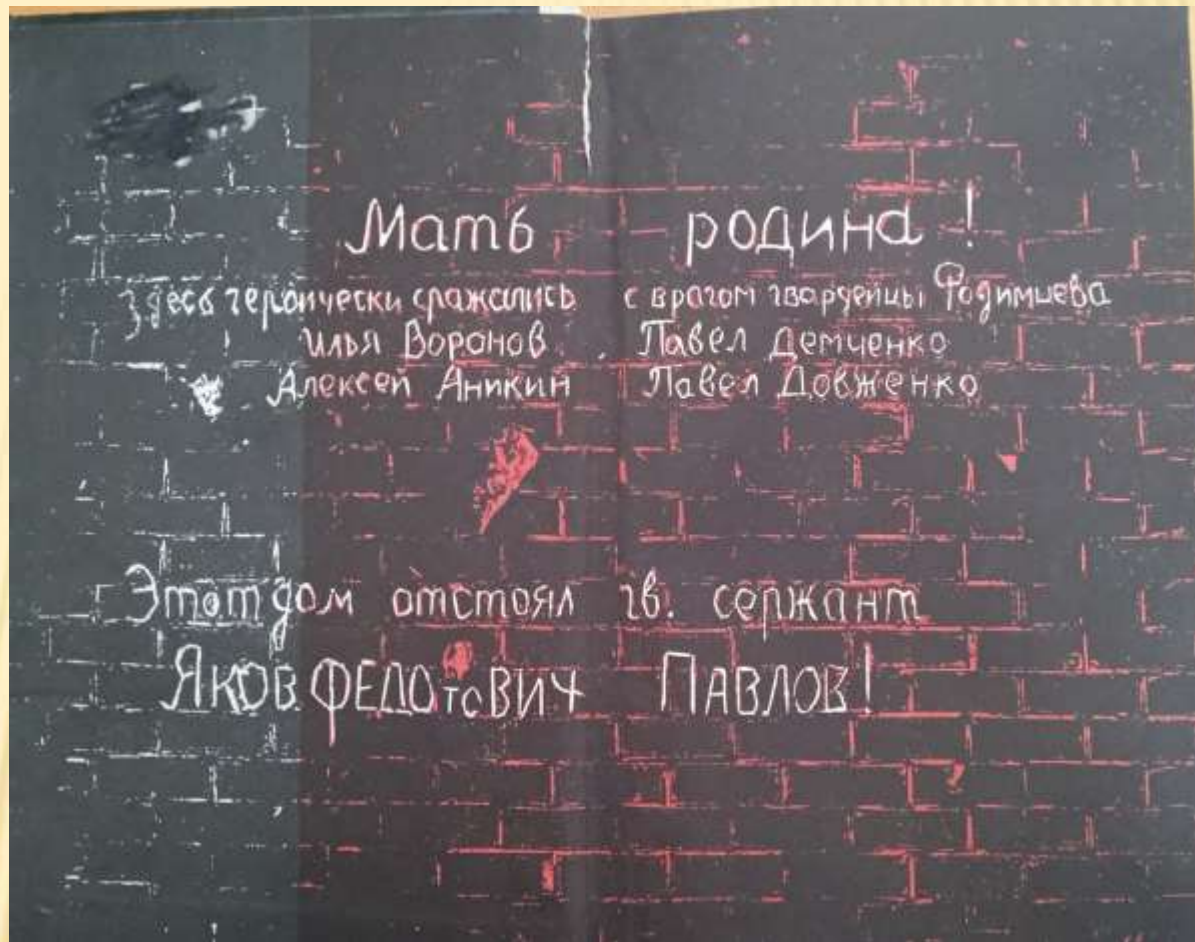 Мать родина!
Здесь героически сражались с врагом гвардейцы Родимцева
Илья Воронов. Павел Демченко
Алексей Аникин Павел Довженко
Этот дом отстоял гв. сержант
ЯКОВ ФЕДОтоВИЧ ПАВЛОВ!